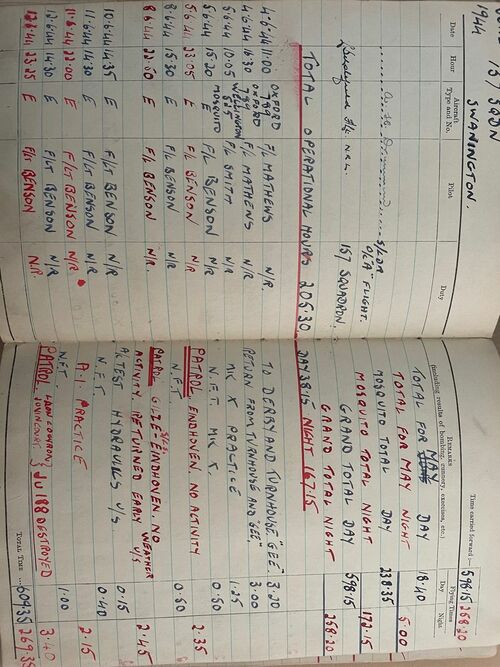 1944 157 SQDN SWANNINGTON.
Time carried forward :— 598.15 258.20
Date Hour Aircraft Type and No. Pilot Duty REMARKS (including results of bombing, gunnery, exercises, etc.) Flying Times Day Night
TOTAL FOR MAY DAY 18.40
TOTAL FOR MAY NIGHT 5.00
S/LDR MOSQUITO TOTAL DAY 238.35
O/C "A" FLIGHT. MOSQUITO TOTAL NIGHT 172.15
157 SQUADRON. GRAND TOTAL DAY 598.15
GRAND TOTAL NIGHT 258.20
TOTAL OPERATIONAL HOURS 205.30 DAY 38.15 NIGHT 167.15
4.6.44 11.00 OXFORD 789 F/L MATHEWS N/R. TO DERBY AND TURNHOUSE "GEE" 3.20
4.6.44 16.30 OXFORD 789 F/L MATHEWS N/R RETURN FROM TURNHOUSE AND "GEE" 3.00
5.6.44 10.05 WELLINGTON F/L SMITH N/R MK X PRACTICE 1.25
5.6.44 15.20 MOSQUITO E F/L BENSON N/R N.F.T. MK X. 0.50
5.6.44 23.05 E F/L BENSON N/R PATROL EINDHOVEN. NO ACTIVITY 2.35
8.6.44 15.30 E F/L BENSON N/R N.F.T. 0.50
8.6.44 22.50 E F/L BENSON N/R PATROL GILZE EINDHOVEN. NO ACTIVITY RETURNED EARLY WEATHER U/S 2.45
10.6.44 14.35 E F/LT BENSON N/R A/C TEST HYDRAULICS U/S 0.15
11.6.44 14.30 E F/LT BENSON N/R N.F.T. 0.40
11.6.44 22.00 E F/LT BENSON N/R A.I. PRACTICE 2.15
12.6.44 14.30 E F/LT BENSON N/R N.F.T. 1.00
12.6.44 23.25 E F/LT BENSON N/R. PATROL LAON COUVRON JUVINCOURT. } JU 188 DESTROYED 3.40
TOTAL TIME ... 609.35 269.35